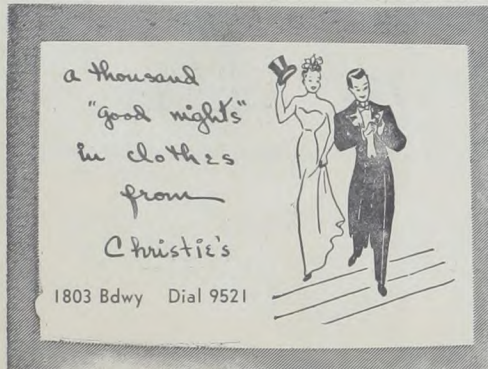 a thousand
"good nights"
in clothes
from
Christie's
1803 Bdwy Dial 9521